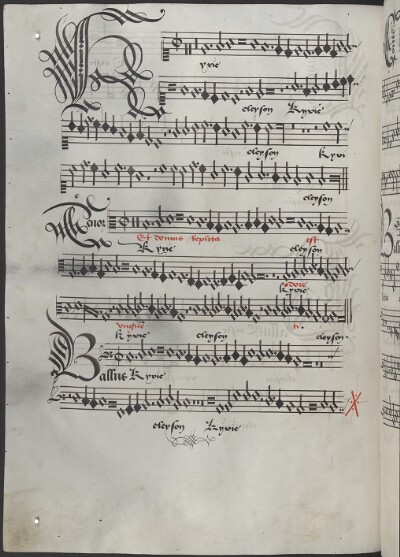 K yrie
eleyson Kyrie
eleyson Kyri
eleyson
Tenor Et domus repleta est
Kyrie eleyson
odore
Kyrie
unguē ti.
Kyrie eleyson eleyson.
Bassus Kyrie
eleyson Kyrie